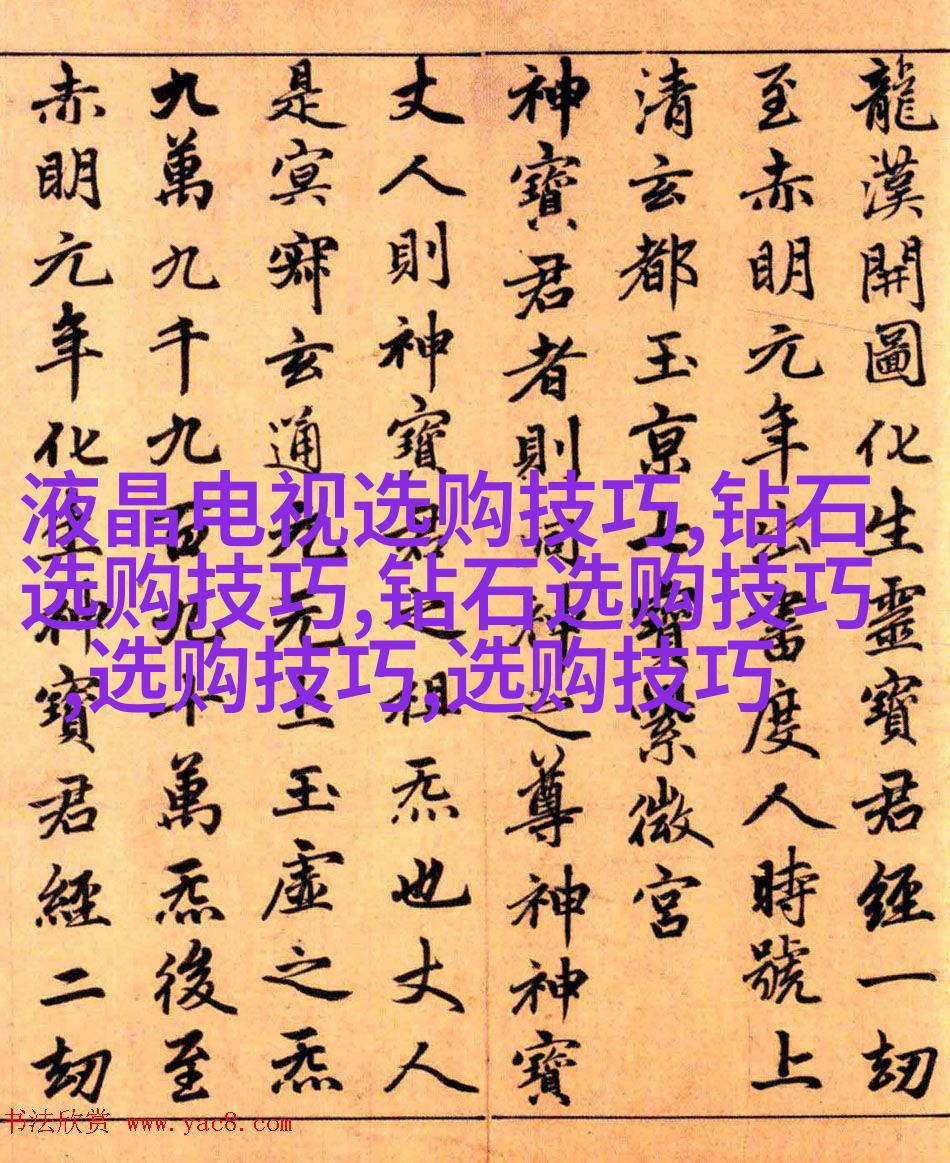 龍漢開圖化生靈寶君經一劫
至赤明元年出書度人時號上
清玄都玉京七寶紫微宮
神寶君者則洞神之尊神神寶
丈人則神寶君之祖炁也丈人
是冥寂玄通元无上玉虛之炁
九萬九千九百九十萬炁後至
赤明元年化生神寶君經二劫
液晶电视选购技巧,钻石
选购技巧,钻石选购技巧
,选购技巧,选购技巧
书法欣赏 www.yac8.com